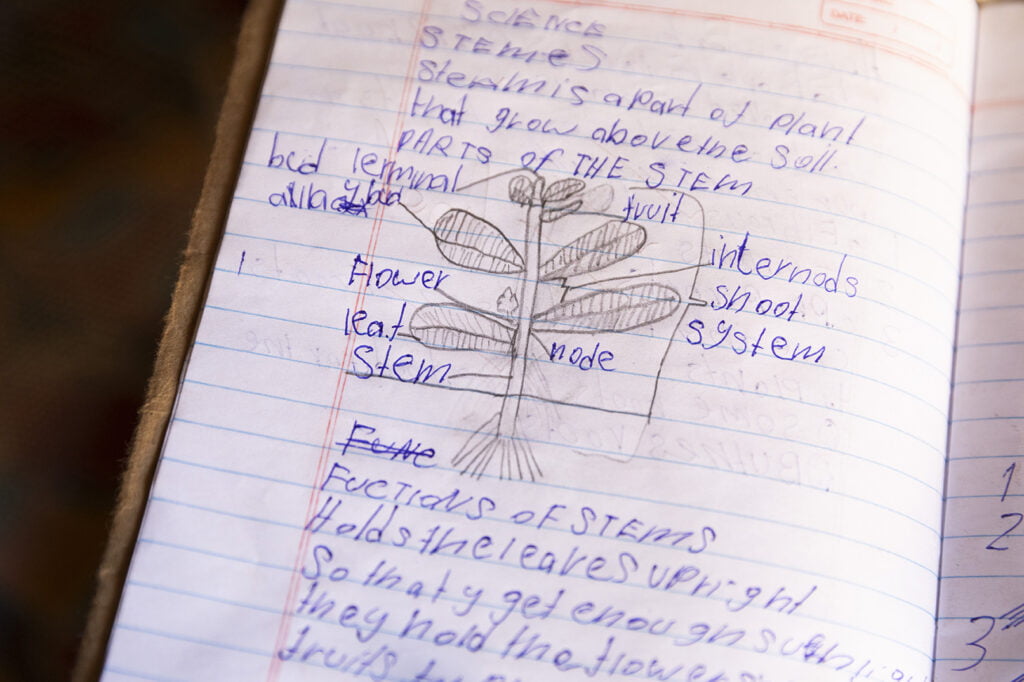 DATE:
SCIENCE
STEMES
Stem is a part of plant
that grow above the Soil.
PARTS of THE STEM
bud terminal
fruit
Flower
internods
shoot
system
leaf
Stem
node
1
FUNC
FUCTIONS OF STEMS
Holds the leaves upright
So that y get enough
they hold the flowers
fruits
1
2
3